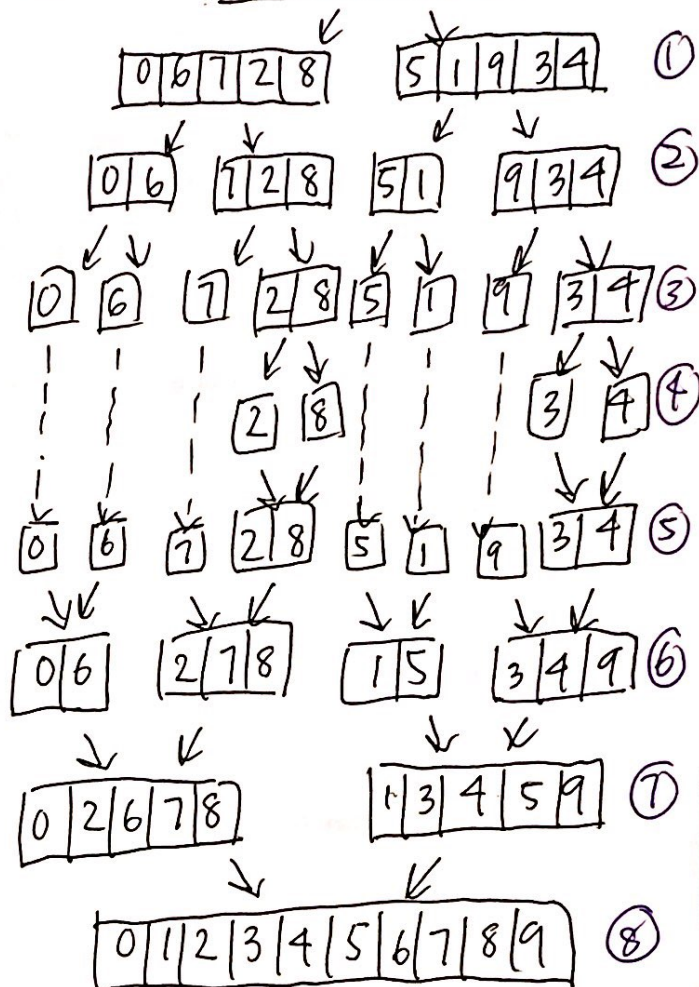 0 6 7 2 8 5 1 9 3 4 ①
0 6 7 2 8 5 1 9 3 4 ②
0 6 7 2 8 5 1 9 3 4 ③
2 8 3 4 ④
0 6 7 2 8 5 1 9 3 4 ⑤
0 6 2 7 8 1 5 3 4 9 ⑥
0 2 6 7 8 1 3 4 5 9 ⑦
0 1 2 3 4 5 6 7 8 9 ⑧